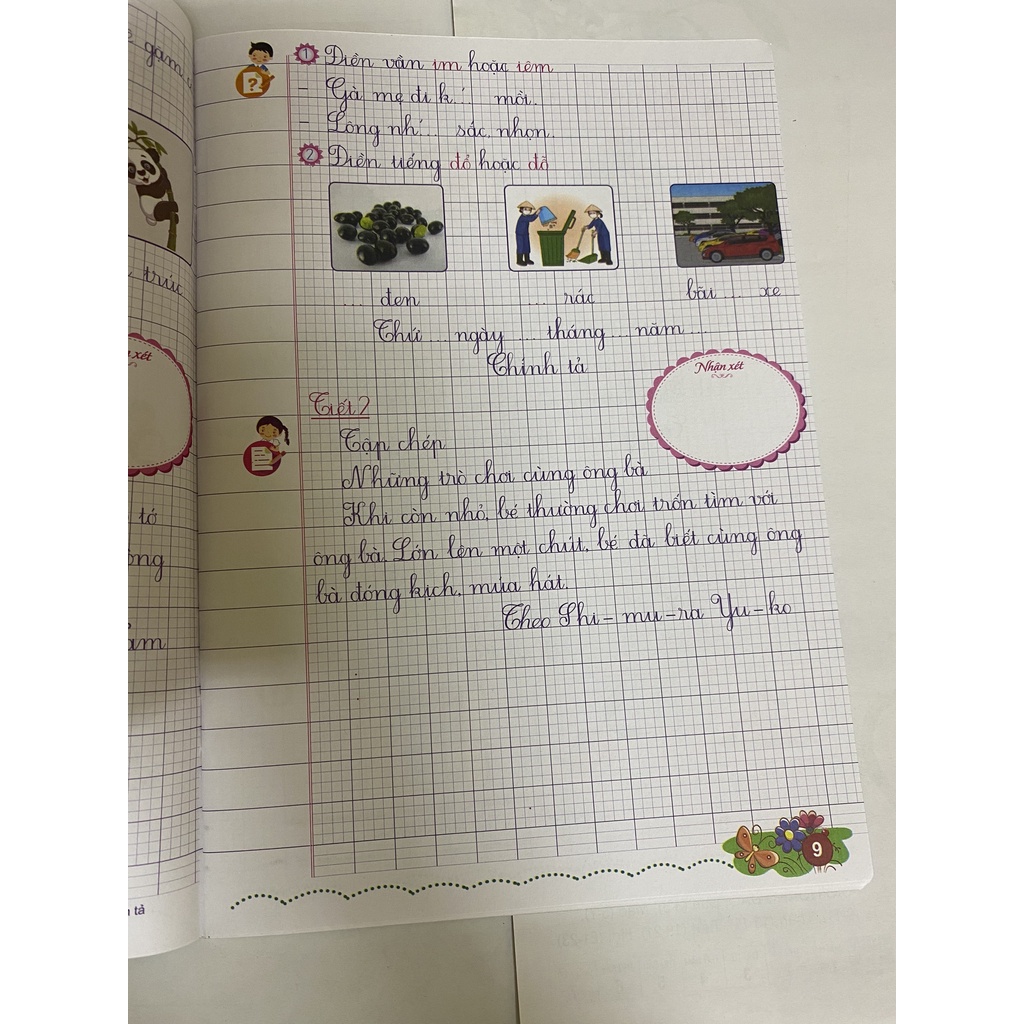 gam
1 Điền vần im hoặc iêm
- Gà mẹ đi k... mồi.
- Lông nh... sắc nhọn.
2 Điền tiếng đổ hoặc đỗ
... đen ... rác bãi ... xe
Thứ ... ngày ... tháng ... năm ...
Chính tả
xét
Nhận xét
trúc
Tiết 2
Tập chép
Những trò chơi cùng ông bà
Khi còn nhỏ, bé thường chơi trốn tìm với
ông bà. Lớn lên một chút, bé đã biết cùng ông
bà đóng kịch, múa hát.
Theo Shi - mu - ra Yu - ko
tớ
9
tả